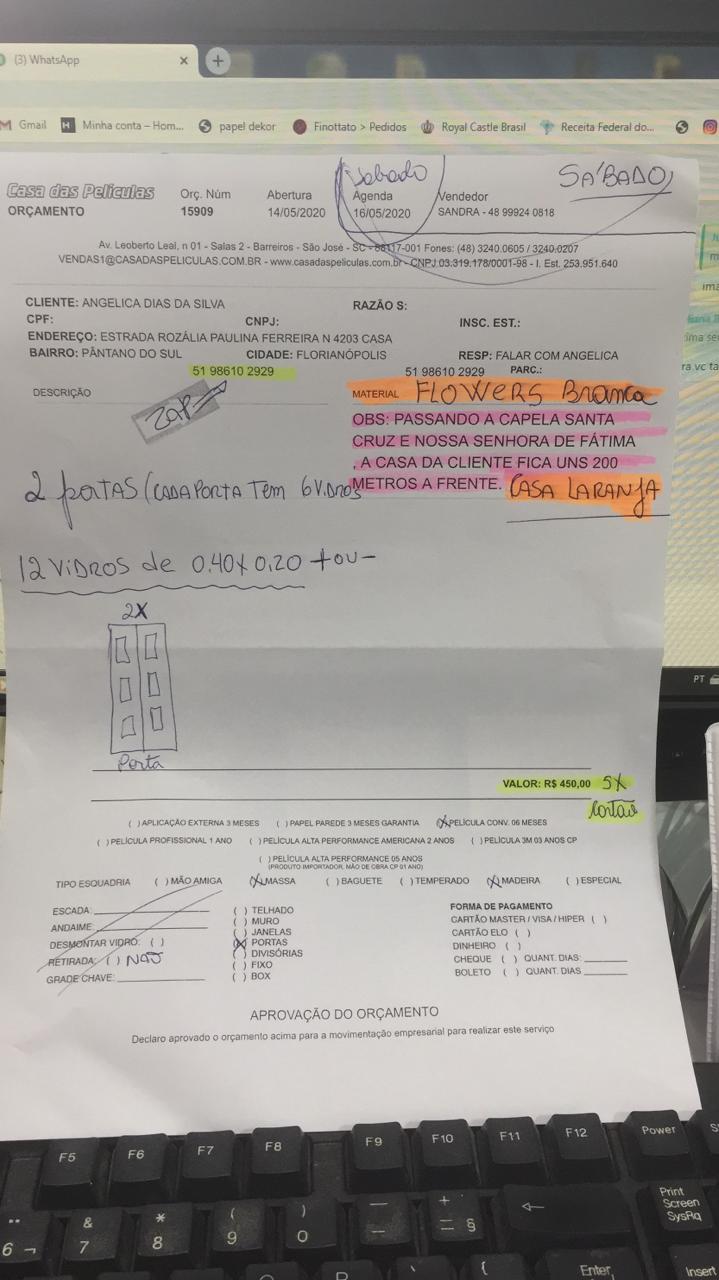 (3) WhatsApp × +
Gmail Minha conta – Hom... papel dekor Finottato > Pedidos Royal Castle Brasil Receita Federal do...
Sabado SÁBADO
Casa das Películas Orç. Núm Abertura Agenda Vendedor
ORÇAMENTO 15909 14/05/2020 16/05/2020 SANDRA - 48 99924 0818
Av. Leoberto Leal, n 01 - Salas 2 - Barreiros - São José - SC - 88117-001 Fones: (48) 3240.0605 / 3240.0207
VENDAS1@CASADASPELICULAS.COM.BR - www.casadaspeliculas.com.br - CNPJ 03.319.178/0001-98 - I. Est. 253.951.640
CLIENTE: ANGELICA DIAS DA SILVA RAZÃO S:
CPF: CNPJ: INSC. EST.:
ENDEREÇO: ESTRADA ROZÁLIA PAULINA FERREIRA N 4203 CASA
BAIRRO: PÂNTANO DO SUL CIDADE: FLORIANÓPOLIS RESP: FALAR COM ANGELICA
51 98610 2929 51 98610 2929 PARC.:
DESCRIÇÃO MATERIAL FLOWERS Branca
ZAP
OBS: PASSANDO A CAPELA SANTA
CRUZ E NOSSA SENHORA DE FÁTIMA
, A CASA DA CLIENTE FICA UNS 200
METROS A FRENTE. CASA LARANJA
2 portas (CADA PORTA TEM 6 VIDROS
12 VIDROS de 0,40 X 0,20 + ou -
2X
Porta
VALOR: R$ 450,00 5X
cartão
( ) APLICAÇÃO EXTERNA 3 MESES ( ) PAPEL PAREDE 3 MESES GARANTIA (X) PELÍCULA CONV. 06 MESES
( ) PELÍCULA PROFISSIONAL 1 ANO ( ) PELÍCULA ALTA PERFORMANCE AMERICANA 2 ANOS ( ) PELÍCULA 3M 03 ANOS CP
( ) PELÍCULA ALTA PERFORMANCE 05 ANOS
(PRODUTO IMPORTADOR, MÃO DE OBRA CP 01 ANO)
TIPO ESQUADRIA ( ) MÃO AMIGA (X) MASSA ( ) BAGUETE ( ) TEMPERADO (X) MADEIRA ( ) ESPECIAL
ESCADA: ( ) TELHADO FORMA DE PAGAMENTO
ANDAIME: ( ) MURO CARTÃO MASTER / VISA / HIPER ( )
( ) JANELAS CARTÃO ELO ( )
DESMONTAR VIDRO: ( ) (X) PORTAS DINHEIRO ( )
RETIRADA: ( ) NÃO ( ) DIVISÓRIAS CHEQUE ( ) QUANT. DIAS:
( ) FIXO BOLETO ( ) QUANT. DIAS
GRADE CHAVE: ( ) BOX
APROVAÇÃO DO ORÇAMENTO
Declaro aprovado o orçamento acima para a movimentação empresarial para realizar este serviço
PT
F5 F6 F7 F8 F9 F10 F11 F12 Power
Print Screen SysRq
6 ¬ & 7 * 8 ( 9 ) 0 + = §
Enter Insert